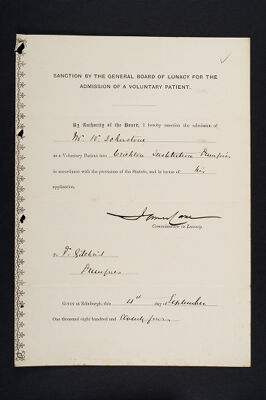 SANCTION BY THE GENERAL BOARD OF LUNACY FOR THE
ADMISSION OF A VOLUNTARY PATIENT.
By Authority of the Board, I hereby sanction the admission of
Mr. W. Johnstone
as a Voluntary Patient into Crichton Institution Dumfries
in accordance with the provisions of the Statute, and in terms of his
application.
Commissioner in Lunacy.
To
Dumfries
Given at Edinburgh, this 4th day of September
One thousand eight hundred and ninety four